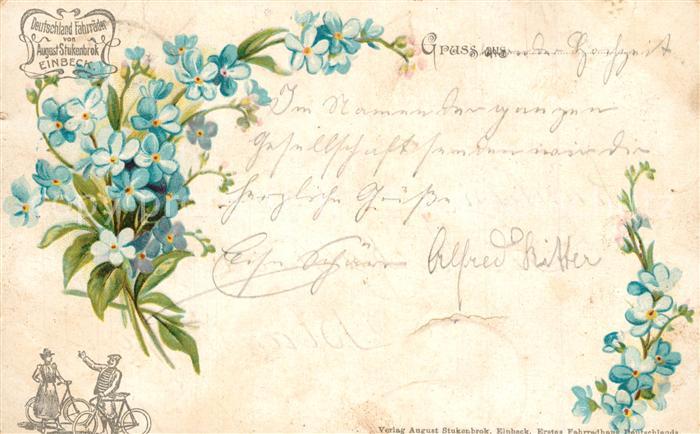 Deutschland Fahrräder
von
August Stukenbrok
EINBECK
Gruss aus von der Hochzeit
Im Namen der ganzen
Gesellschaft senden wir die
herzliche Grüße
Alfred Ritter
Verlag August Stukenbrok, Einbeck, Erstes Fahrradhaus Deutschlands